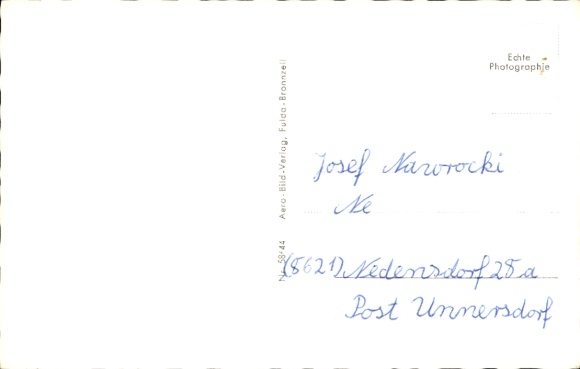 Echte
Photographie
Nr. 58444 Aero-Bild-Verlag, Fulda-Bronnzell
Josef Nawrocki
Ne
(8621) Nedensdorf 28 a
Post Unnersdorf